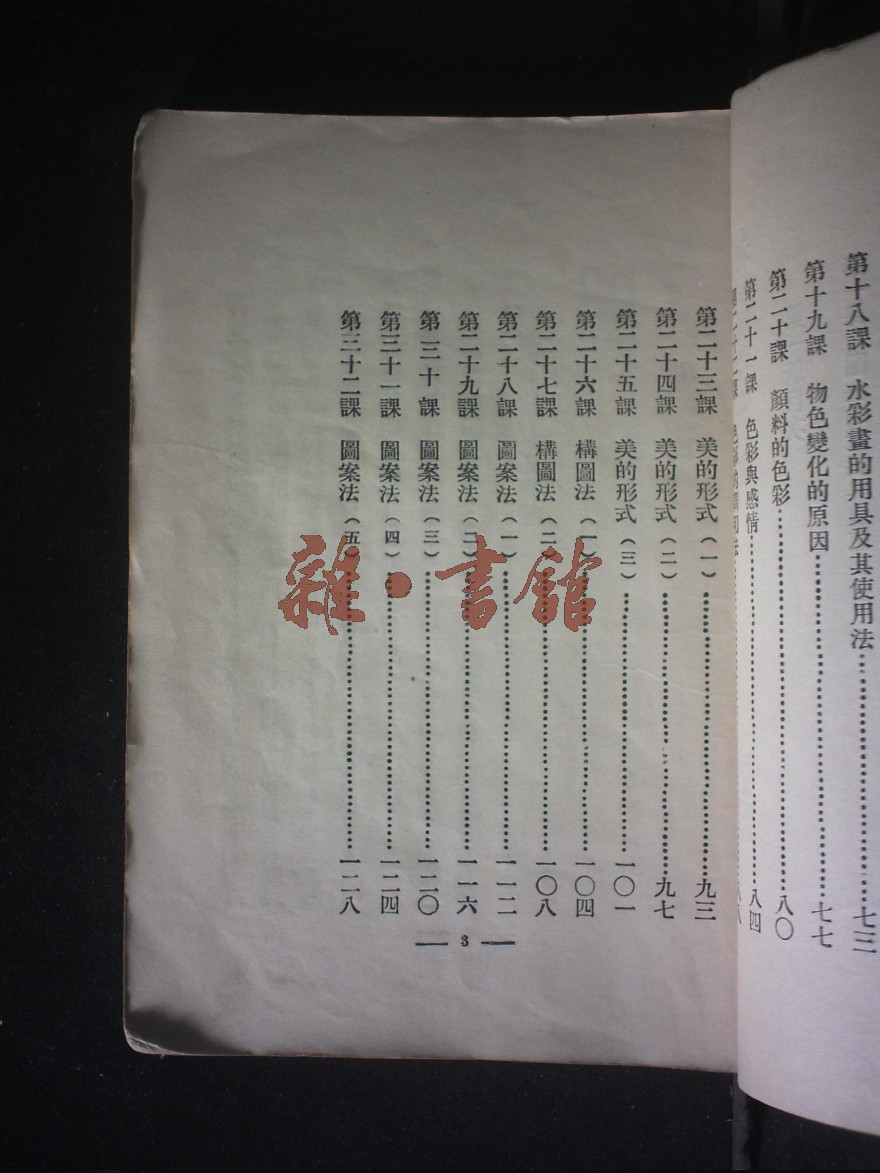 第十八課　水彩畫的用具及其使用法…………七三
第十九課　物色變化的原因…………七七
第二十課　顏料的色彩…………八〇
第二十一課　色彩與感情…………八四
第二十二課　色彩的調和法…………八八
第二十三課　美的形式（一）…………九三
第二十四課　美的形式（二）…………九七
第二十五課　美的形式（三）…………一〇一
第二十六課　構圖法（一）…………一〇四
第二十七課　構圖法（二）…………一〇八
第二十八課　圖案法（一）…………一一二
第二十九課　圖案法（二）…………一一六
第三十課　圖案法（三）…………一二〇
第三十一課　圖案法（四）…………一二四
第三十二課　圖案法（五）…………一二八
— 3 —
雜·書館